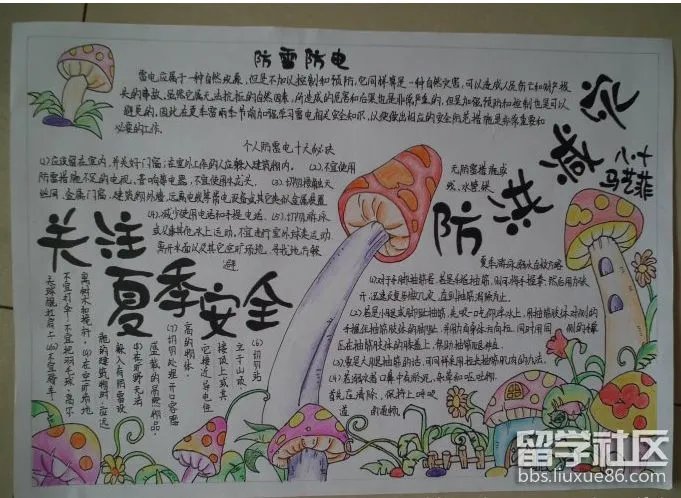 防雷防电
雷电应属于一种自然现象，但是不加以控制和预防，它同样算是一种自然灾害，可以造成人员伤亡和财产损
失的事故。虽然它属无法抗拒的自然因素，所造成的危害和后果也是非常严重的，但是加强预防和控制也是可以
避免的，因此在夏季雷雨季节前加强学习雷电相关安全知识，以便做出相应的安全防范措施是非常重要和
必要的工作。
个人防雷电十大秘诀
(1)应该留在室内，并关好门窗；在室外工作的人应躲入建筑物内。(2)不宜使用
无防雷措施或
防雷措施不足的电视、音响等电器，不宜使用水龙头。(3)切勿接触天
线、水管
丝网、金属门窗、建筑物外墙，远离电线等带电设备或其他类似金属装置
(4)减少使用电话和手提电话。(5)切勿游泳
或从事其他水上运动，不宜进行室外球类运动
离开水面以及其它空旷场地，寻找地方躲
避
(6)切勿站
立于山顶、
楼顶上或其
它接近导电性
高的物体。
(7)切勿处理开口容器
盛载的易燃物品
(8)在旷野无法
躲入有防雷设
施的建筑物时，应远
离树木和桅杆
(9)在空旷场地
不宜打伞，不宜把羽毛球、高尔
夫球棍扛肩上
(10)不宜骑车
关注
夏季安全
防洪
八.十
马艺菲
夏季游泳溺水自救方略
(1)对于手脚抽筋者，若是手指抽筋，则可将手握拳，然后用力张
开，迅速反复多做几次，直到抽筋消除为止。
(2)若是小腿或脚趾抽筋，先吸一口气仰浮水上，用抽筋肢体对侧的
手握住抽筋肢体的脚趾，并用力向身体方向拉，同时用同侧的手掌
压在抽筋肢体的膝盖上，帮助抽筋腿伸直
(3)要是大腿抽筋的话，可同样采用拉长抽筋肌肉的方法。
留学社区
bbs.liuxue86.com